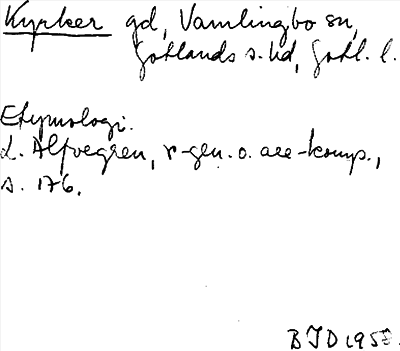 Kyrker gd, Vamlingbo sn,
Gotlands s. hd, Gotl. l.
Etymologi.
L. Alfvegren, r-gen. o. ace-komp.,
s. 176.
BJD